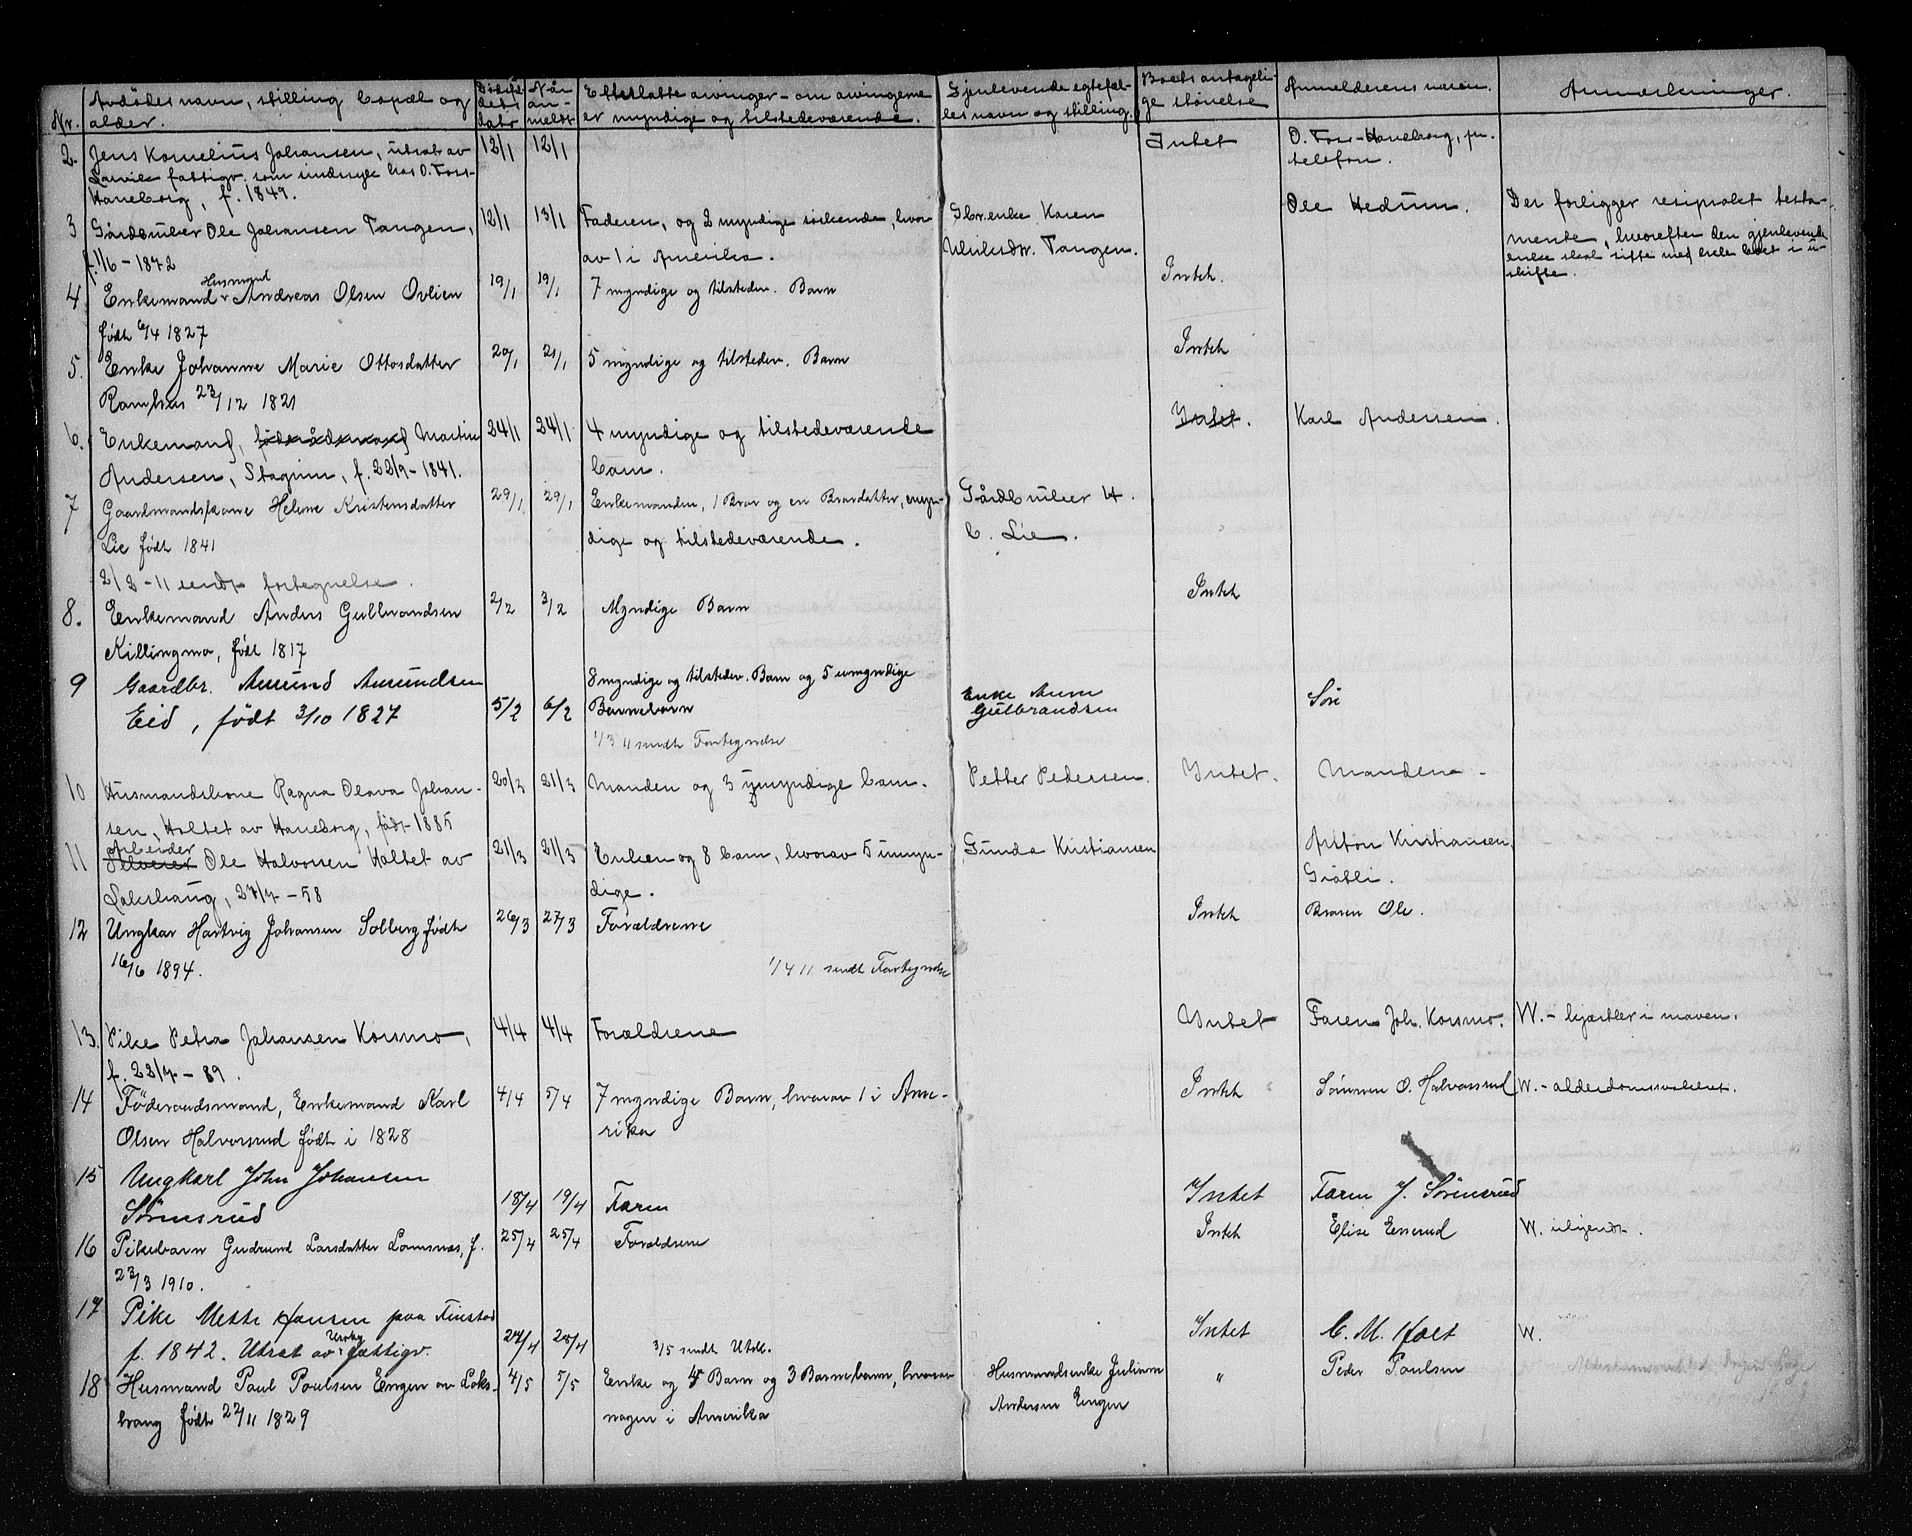 Nr. Avdødes navn, stilling bopæl og alder. Dødsfaldets dato Når anmeldt Efterlatte arvinger - om arvingerne er myndige og tilstedeværende. Gjenlevende egtefælles navn og stilling. Boets antagelige størrelse Anmelderens navn. Anmerkninger.
2. Jens Kornelius Johansen, utsat av 12/1 12/1 Intet O. Foss-Haneborg, pr.
fattigv. som sindssyk hos O. Foss- telefon.
Haneborg, f. 1849.
3 Gårdbruker Ole Johansen Tangen, 12/1 13/1 Faderen, og 2 myndige søskende, hvor- Gbr.enke Karen Ole Hedum. Der foreligger resiprokt testa-
f. 1/6 - 1872 av 1 i Amerika. Tangen. mente, hvorefter den gjenlevende
enke skal sitte med hele boet i u-
skifte.
4 Enkemand Husmand Andreas Olsen Ovlien 19/1 19/1 7 myndige og tilstedev. Barn Intet.
født 6/4 1827
5. Enke Johanne Marie Ottosdatter 20/1 21/1 5 myndige og tilstedev. Barn Intet
Ramhus 23/12 1821
6. Enkemand, Martin 24/1 24/1 4 myndige og tilstedeværende Intet. Karl Andersen.
Andersen, f. 22/9 - 1841. barn.
7 Gaardmandskone Helene Kristensdatter 29/1 29/1 Enkemanden, 1 Bror og en Brordatter, myn- Gårdbruker H.
Lie født 1841 dige og tilstedeværende. C. Lie.
2/2 - 11 sendt fortegnelse.
8. Enkemand Anders Gulbrandsen 2/2 3/2 Myndige Barn Intet
Killingmo, født 1817
9 Gaardbr. Amund Amundsen 8 myndige og tilstedev. Barn og 5 umyndige Enke Anne
Eid, født 3/10 1827 5/2 6/2 Barnebarn Gulbrandsen
1/3 11 sendt Fortegnelse
10 Husmandskone Ragna Olava Johan- 20/3 21/3 Manden og 3 umyndige barn. Petter Pedersen. Intet. Manden
sen, Holtet av Haneborg, født 1885
11 Arbeider Ole Halvorsen Holtet av 21/3 21/3 Enken og 8 barn, hvorav 5 umyn- Gunda Kristiansen Anton Kristiansen,
Lokshaug, 27/7 - 58 dige.
12 Ungkar Hartvig Johansen Solberg født 26/3 27/3 Forældrene Intet Broren Ole.
16/6 1894. 1/4 11 sendt Fortegnelse
13. Pike Petra Johansen Korsmo, 4/4 4/4 Forældrene Intet Faren Joh. Korsmo. W. - hjertler i maven.
f. 23/7 - 89.
14 Føderaadsmand, Enkemand Karl 4/4 5/4 7 myndige Barn, hvorav 1 i Ame- Intet Sønnen O. Halvorsrud W. - alderdomssvakhet.
Olsen Halvorsrud født i 1828 rika
15 Ungkarl John Johansen
Sørensrud 18/4 19/4 Faren Intet Faren J. Sørensrud
16 Pikebarn Gudrund Larsdatter Lomsnæs, f. 25/4 25/4 Forældrene Intet Elise W. ukjendt.
23/3 1910.
17 Pike Mette Hansen paa Finstad
f. 1842. Utsat av fattigv. 27/4 28/4 3/5 sendt Intet C. M. W.
18 Husmand Paul Poulsen Engen av Loks- 4/5 5/5 Enke og 4 Barn og 3 Barnebarn, hvorav Husmandsenke Juliane " Peder Poulsen
haug født 27/11 1829 nogen i Amerika Andersen Engen